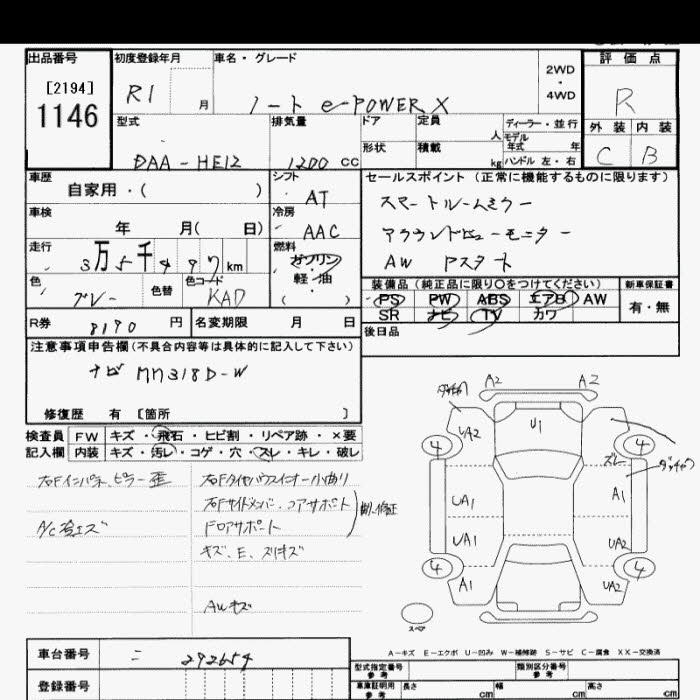 出品番号 初度登録年月 車名・グレード 2WD・4WD 評価点
[2194]
1146 R1 月 ノート e-POWER X R
型式 排気量 ドア 定員 人 ディーラー・並行 外装 内装
形状 積載 kg モデル年式 年式 ハンドル 左・右
DAA-HE12 1200 cc C B
車歴 シフト セールスポイント (正常に機能するものに限ります)
自家用・( ) AT スマートルームミラー
車検 冷房
年 月( 日) AAC アラウンドビューモニター
走行 燃料 AW Pスタート
3万5千497 km ガソリン
軽・油
( )
色 色替 色コード 装備品 (純正品に限り○をつけてください) 新車保証書
グレー KAD PS PW ABS エアB AW 有・無
SR ナビ TV カワ
R券 8190 円 名変期限 月 日 後日品
注意事項申告欄 (不具合内容等は具体的に記入して下さい)
ナビ MM318D-W
修復歴 有 [箇所 ]
検査員 FW キズ・飛石・ヒビ割・リペア跡・×要
記入欄 内装 キズ・汚レ・コゲ・穴・スレ・キレ・破レ
右Fインパネ、ピラー歪
右Fサイドメンバー、コアサポート
Fロアサポート
キズ、E、スリキズ
AWキズ
A2 A2
UA2 U1
4 4
ズレ
UA1 A1
UA1 UA2
4 4
A1 UA2
スペア
A-キズ E-エクボ U-凹み W-補修跡 S-サビ C-腐食 XX-交換済
車台番号 ニ 292654 型式指定番号 参考 類別区分番号 参考
登録番号 車庫証明用 参考 長さ cm 幅 cm 高さ cm